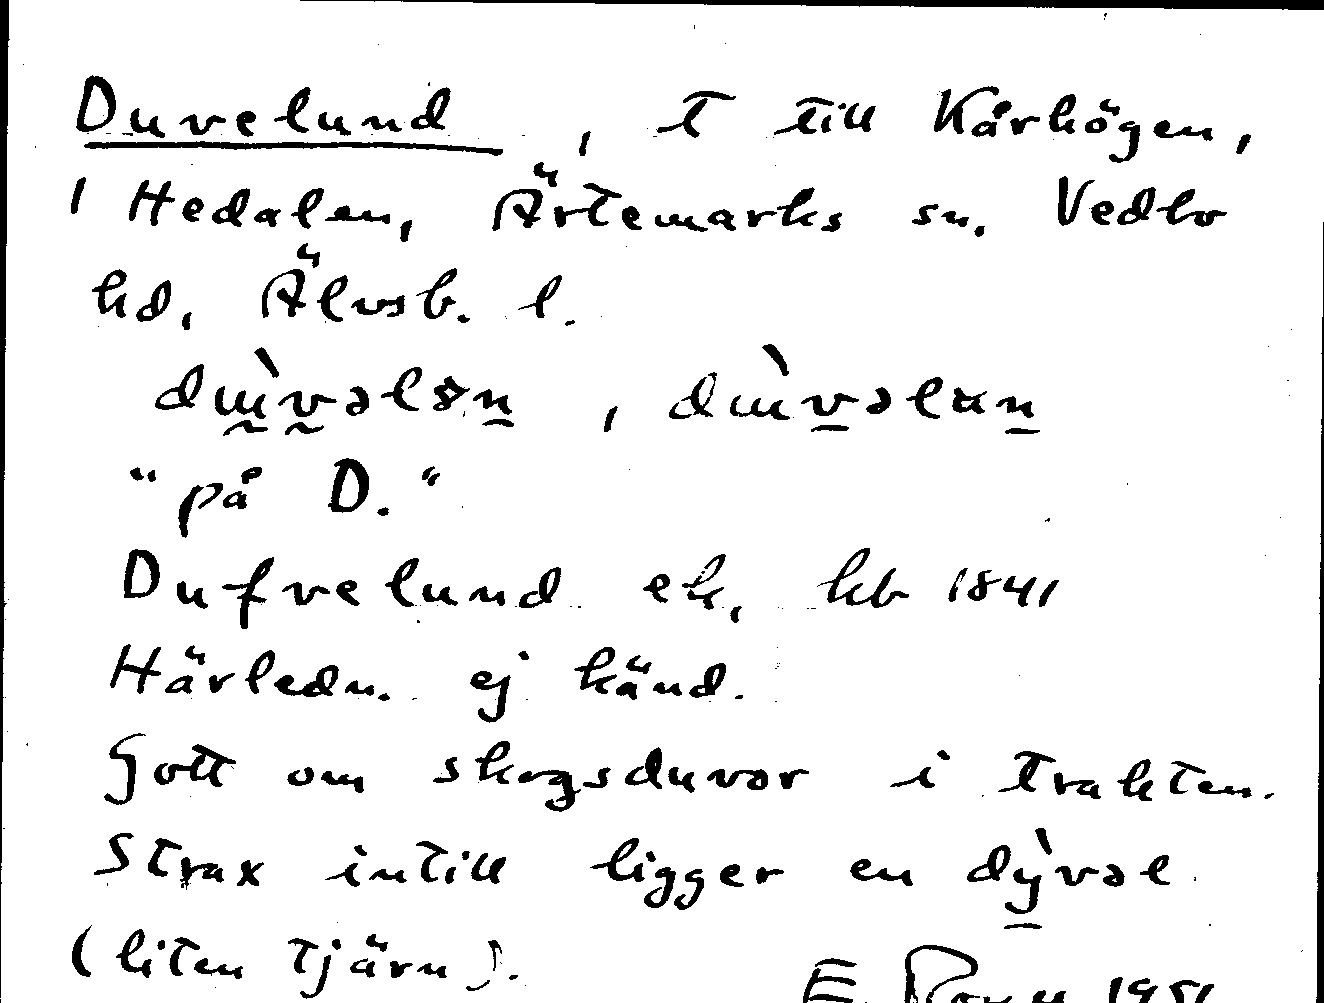 Duvelund, T till Kårhögen,
1 Hedalen, Ärtemarks sn. Vedbo
hd, Älvsb. l.
"på D."
Dufvelund ek, hb 1841
Härledn. ej känd.
Gott om skogsduvor i trakten.
Strax intill ligger en dỳvəl
(liten tjärn).
E.